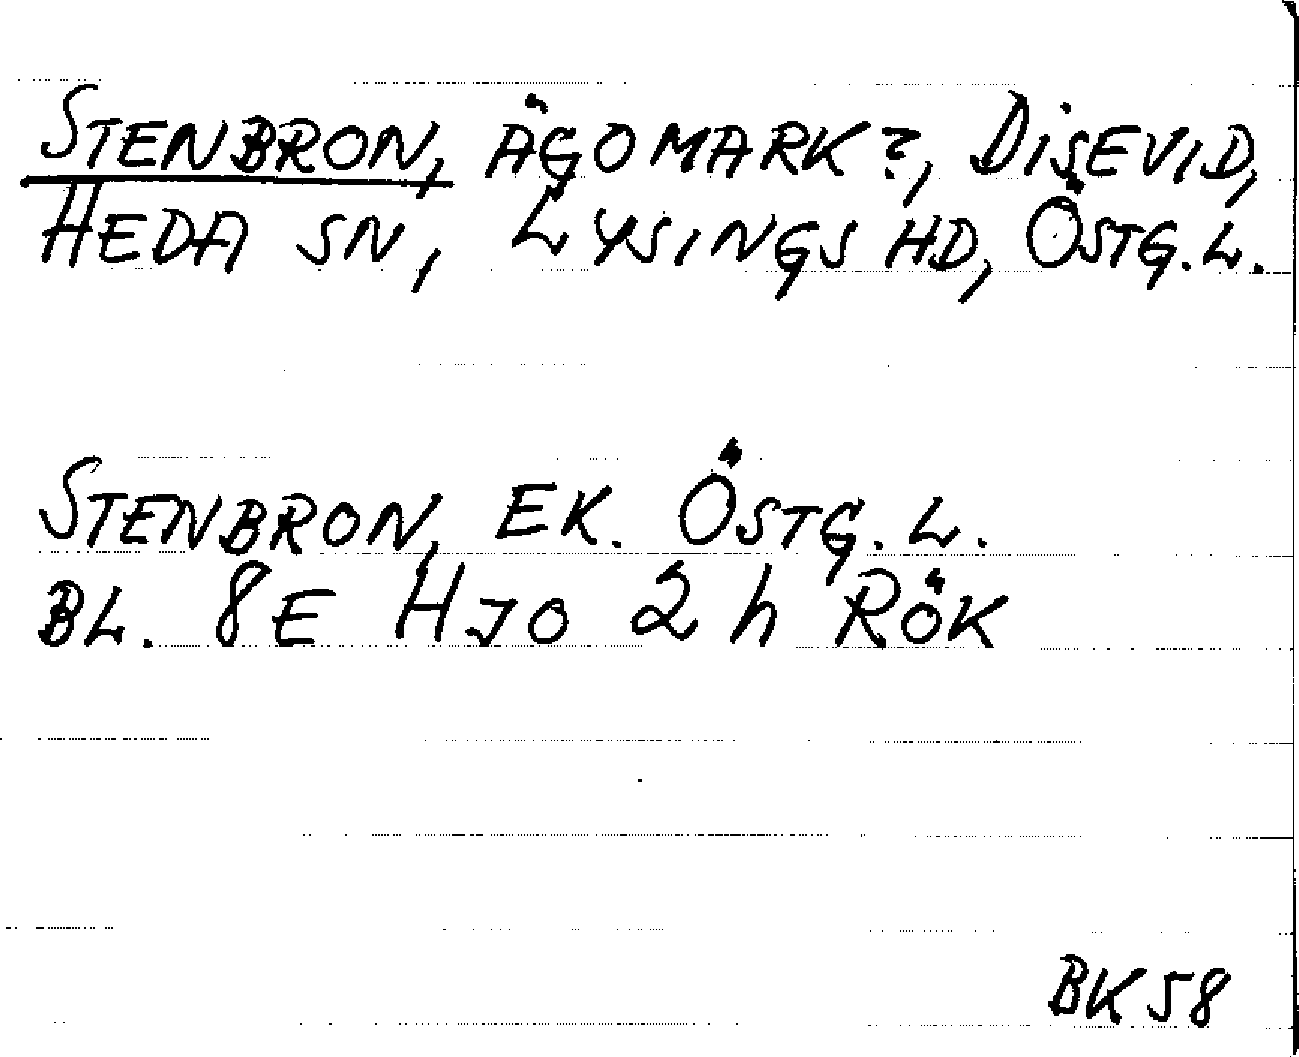 STENBRON, ÄGOMARK?, DISEVID,
HEDA SN, LYSINGS HD, ÖSTG. L.
STENBRON, EK. ÖSTG. L.
BL. 8E HJO 2 h RÖK
BK 58